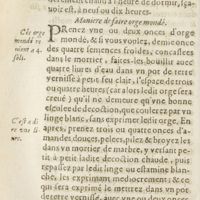 decement chaud à l'heure de dormir, sça-
uoir est, à neuf ou dix heures.
Maniere de faire orge mondé.
PRenez vne ou deux onces d'orge
mondé, & si vous voulez, demie once
des quatre semences froides, concassees
dans le mortier, faites les bouillir auec
quatre liures d'eau dans vn pot de terre
vernissé à petit feu lent, l'espace de trois
ou quatre heures (car ledit orge s'enfle-
ra) & qu'il ne demeure qu'vne bonne
escuelee de decoction, que coulerez par vn
linge blanc, sans exprimer ledit orge. En
apres, prenez trois ou quatre onces d'a-
mandes douces, pelez, pilez & broyez les
dans vn mortier de marbre, y mettant
petit à petit ladite decoction chaude, puis
repassez par ledit linge ou estamine blan-
che, les exprimant mediocrement : & ce
qui sera exprimé le mettrez dans vn pot
de terre vernissé, auec vne once ou deux
Cest orge
mondé re
uient a 4.
sols.
C'est a di
re vn li-
ure.